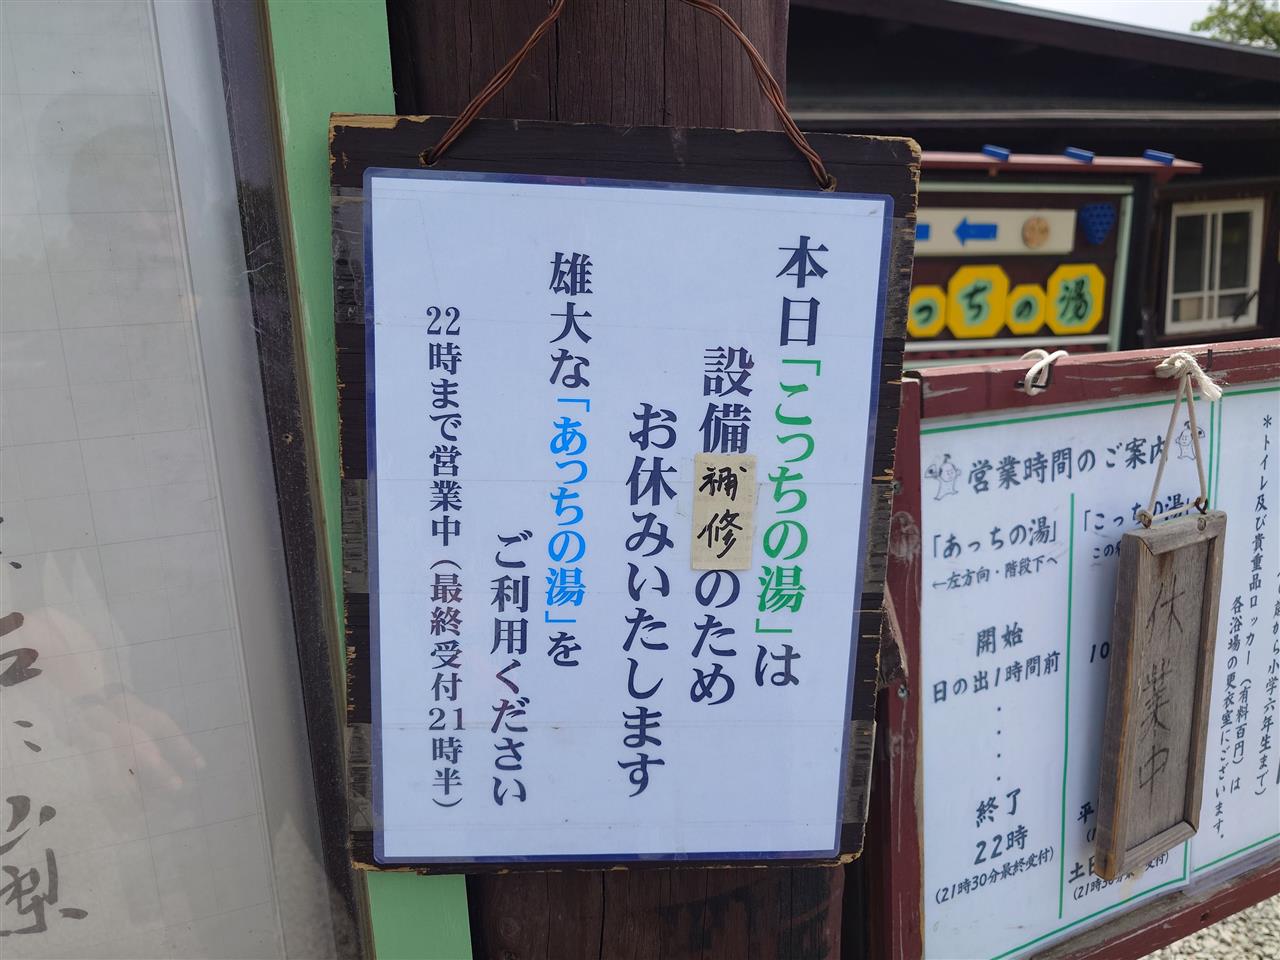 本日「こっちの湯」は
設備補修のため
お休みいたします
雄大な「あっちの湯」を
ご利用ください
22時まで営業中（最終受付21時半）
っちの湯
営業時間のご案内
「あっちの湯」
←左方向・階段下へ
開始
日の出1時間前
終了
22時
(21時30分最終受付)
「こっちの湯」
休業中
＊トイレ及び貴重品ロッカー（有料百円）は
各浴場の更衣室にございます。
から小学六年生まで）